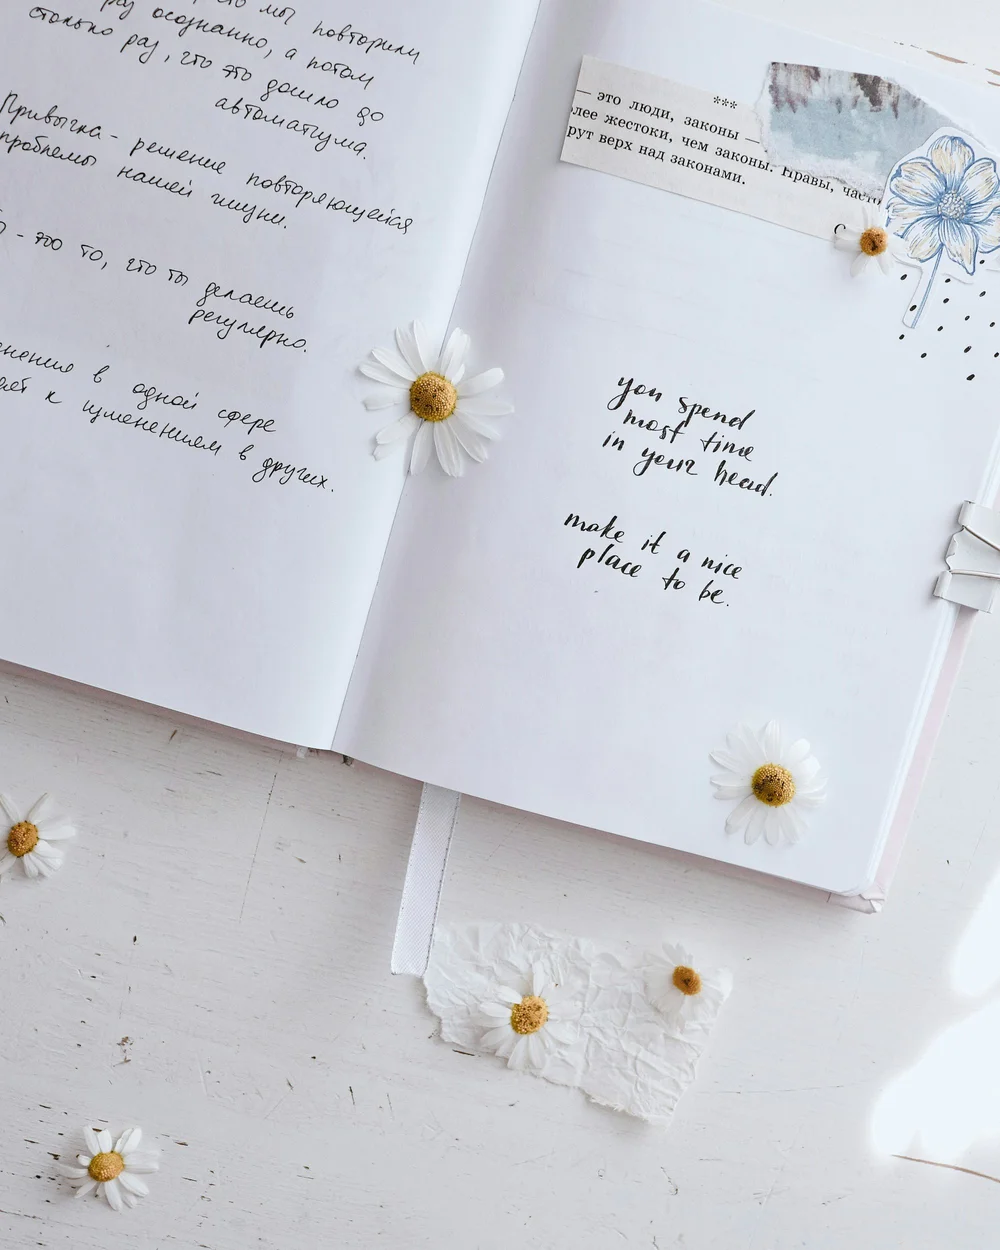 мы повторили
раз осознанно, а потом
столько раз, что это дошло до
автоматизма.
Привычка - решение повторяющейся
проблемы нашей жизни.
- это то, что ты делаешь
регулярно.
в одной сфере
к изменениям в других.
***
— это люди, законы —
жестоки, чем законы. Нравы, часто
верх над законами.
you spend
most time
in your head.
make it a nice
place to be.